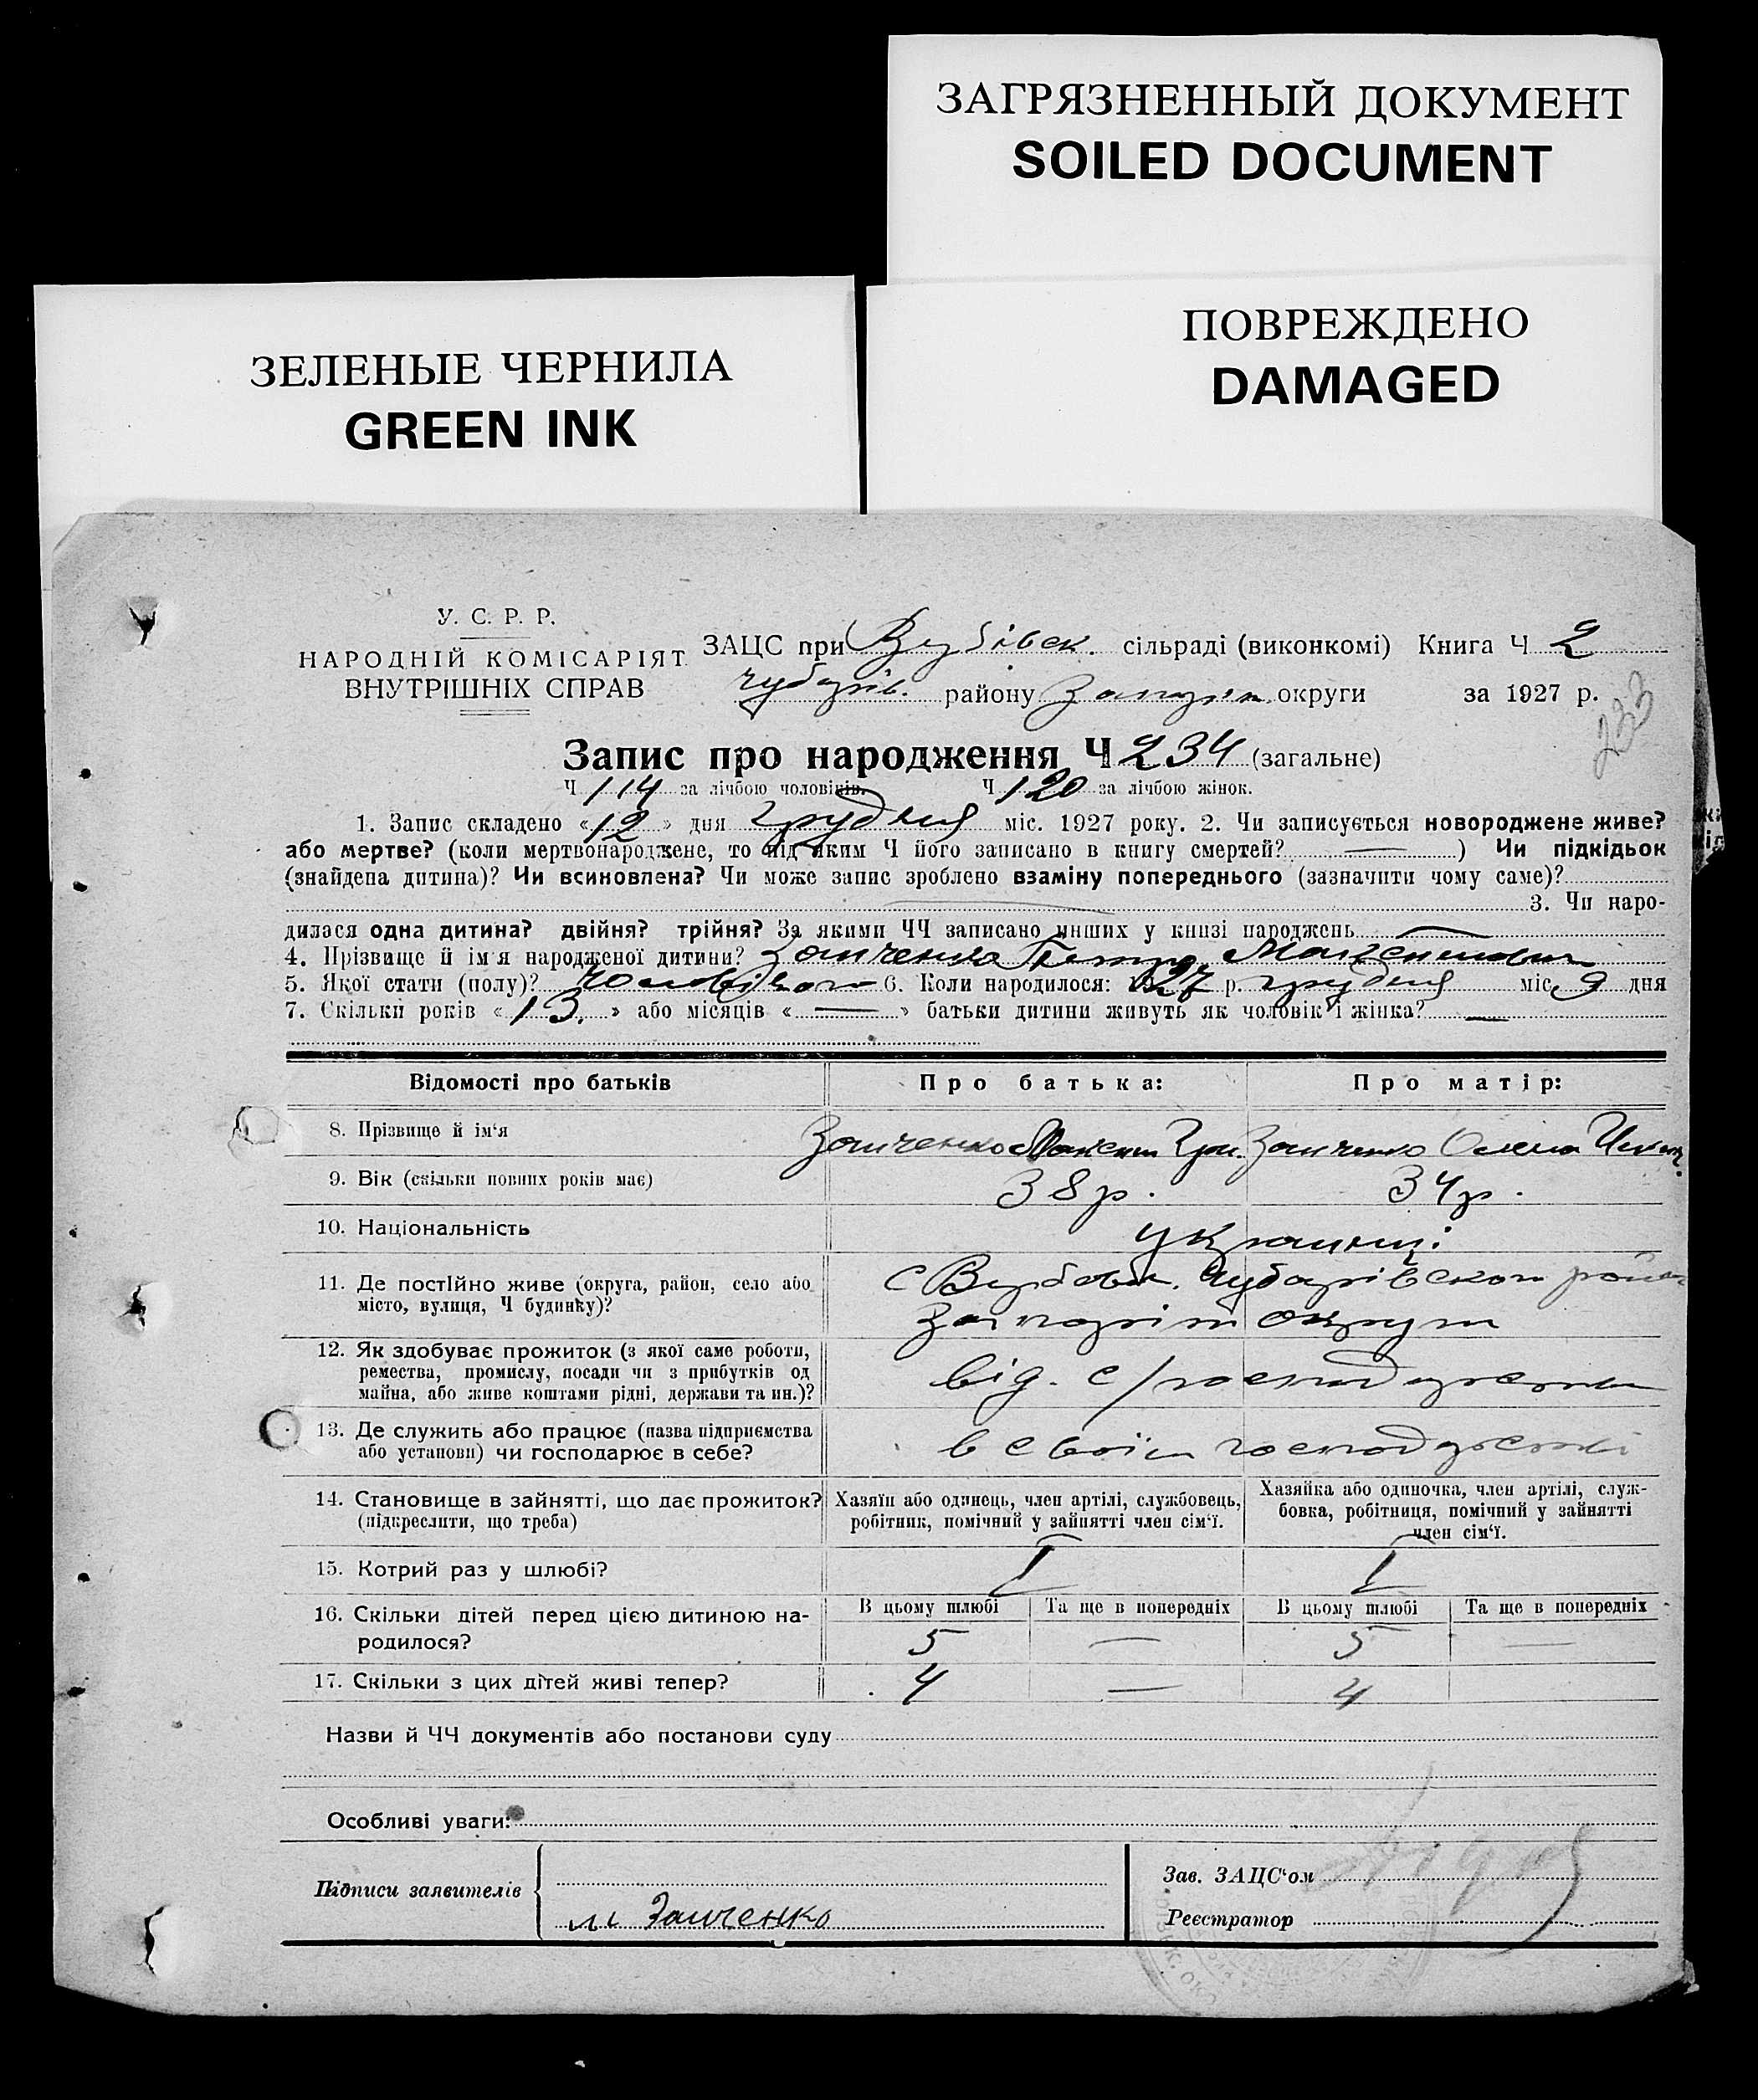 ЗАГРЯЗНЕННЫЙ ДОКУМЕНТ
SOILED DOCUMENT
ПОВРЕЖДЕНО
DAMAGED
ЗЕЛЕНЫЕ ЧЕРНИЛА
GREEN INK
У. С. Р. Р.
НАРОДНІЙ КОМІСАРІЯТ
ВНУТРІШНІХ СПРАВ
ЗАЦС при Вербівськ. сільраді (виконкомі) Книга Ч 2
Чубарів. району Запоріж. округи за 1927 р.
233
Запис про народження Ч 234 (загальне)
Ч 114 за лічбою чоловіків. Ч 120 за лічбою жінок.
1. Запис складено «12» дня грудня міс. 1927 року. 2. Чи записується новороджене живе?
або мертве? (коли мертвонароджене, то під яким Ч його записано в книгу смертей? —) Чи підкідьок
(знайдена дитина)? Чи всиновлена? Чи може запис зроблено взаміну попереднього (зазначити чому саме)?
3. Чи наро-
дилася одна дитина? двійня? трійня? За якими ЧЧ записано инших у книзі народжень —
4. Прізвище й ім'я народженої дитини? Заиченко Петро Максимович
5. Якої стати (полу)? чоловічого 6. Коли народилося: 1927 р. грудня міс. 9 дня
7. Скільки років «13.» або місяців «—» батьки дитини живуть як чоловік і жінка? —
Відомості про батьків Про батька: Про матір:
8. Прізвище й ім'я Заиченко Максим Гри. Заиченко Олена
9. Вік (скільки повних років має) 38 р. 34 р.
10. Національність українці
11. Де постІйно живе (округа, район, село або с Вербове. Чубарівського району
місто, вулиця, Ч будинку)? Запоріж округи
12. Як здобуває прожиток (з якої саме роботи,
ремества, промислу, посади чи з прибутків од від. с/господарства
майна, або живе коштами рідні, держави та ин.)?
13. Де служить або працює (назва підприємства в своїм господарстві
або установи) чи господарює в себе?
14. Становище в зайнятті, що дає прожиток? Хазяїн або одинець, член артілі, службовець, Хазяйка або одиночка, член артілі, служ-
(підкреслити, що треба) робітник, помічний у зайнятті член сім'ї. бовка, робітниця, помічний у зайнятті
член сім'ї.
15. Котрий раз у шлюбі? I I
16. Скільки дітей перед цією дитиною на- В цьому шлюбі Та ще в попередніх В цьому шлюбі Та ще в попередніх
родилося? 5 — 5 —
17. Скільки з цих дітей живі тепер? 4 — 4
Назви й ЧЧ документів або постанови суду
Особливі уваги:
Підписи заявителів
м Заиченко
Зав. ЗАЦС'ом
Реєстратор